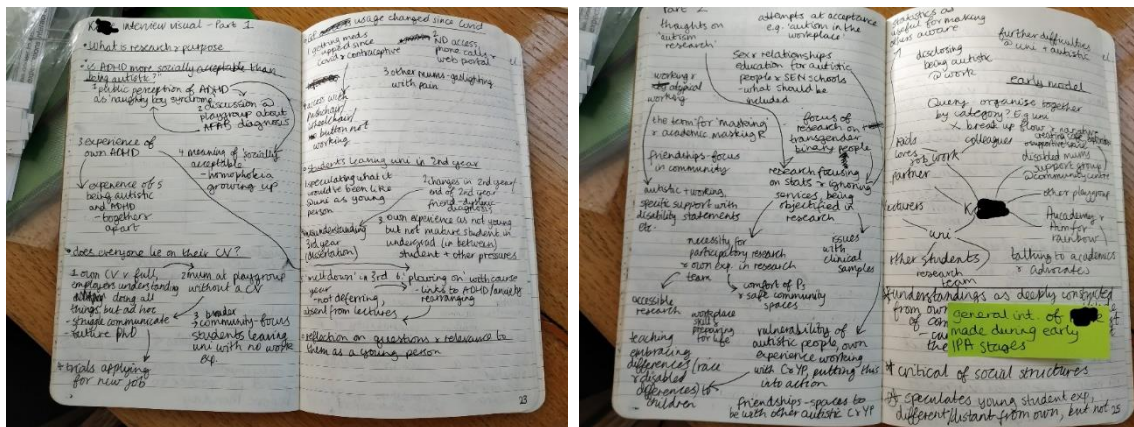 interview visual - Part 1
• What is research & purpose
• is ADHD more socially acceptable than
being autistic?"
1 public perception of ADHD
as 'naughty boy syndrome'
2 discussion @
playgroup about
AFAB diagnosis
3 experience of
own ADHD
4 meaning of 'socially
acceptable'
- homophobia
growing up
experience of 5
being autistic
and ADHD
- together &
apart
• does everyone lie on their CV?
1 own CV & full
employers understanding
doing all
things, but ad hoc
- struggle communicate
- failure PhD
2 mum at playgroup
without a CV
3 broader
community-focus
students leaving
uni with no work
exp.
4 trials applying
for new job
usage changed since Covid
1 getting meds
upped since
covid & contraceptive
2 ND access
phone calls &
web portal
3 other mums - gaslighting
with pain
4 access with
pushchair/
wheelchair/
button not
working
• students leaving uni in 2nd year
1 speculating what it
would've been like
@ uni as young
person
2 changes in 2nd year/
end of 2nd year
friend-dynamic
diagnosis
3 own experience as not young
but not mature student in
undergrad (in between)
student + other pressures
misunderstanding
3rd year
(dissertation)
'meltdown' in 3rd
year
- not deferring,
absent from lectures
6 'plowing on' with course
- links to ADHD/anxiety
rearranging
• reflection on questions & relevance to
them as a young person
23
Part 2
thoughts on
'autism
research'
attempts at acceptance
e.g. 'autism in the
workplace'
sex & relationships
education for autistic
people & SEN schools
- what should be
included
working &
atypical
working
the term for 'masking'
& academic masking
focus of
research on
transgender
binary people
friendships - focus
in community
research focusing
on stats & ignoring
services, being
objectified in
research
autistic + working,
specific support with
disability statements
etc.
necessity for
participatory research
& own exp. in research
team
issues
with
clinical
samples
comfort of Ps
& safe community
spaces
accessible
research
workplace
skills
preparing
for life
teaching
embracing
differences (race
& disabled
differences) to
children
vulnerability of
autistic people, own
experience working
with C&YP, putting this
into action
friendships - spaces to
be with other autistic C&YP
statistics as
useful for making
others aware
disclosing
being autistic
@ work
further difficulties
@ uni + autistic
early model
Query organise together
by category? E.g. uni
X break up flow & narrative
colleagues
job work
partner
disabled mums
support group
@ community centre
other playgroup
K
uni
Aucademy &
Aim for
rainbow
talking to academics
& advocates
other students
research
team
* understandings as deeply constricted
from own
general int. of
made during early
IPA stages
* critical of social structures
* speculates young student exp,
different/distant from own, but not
25